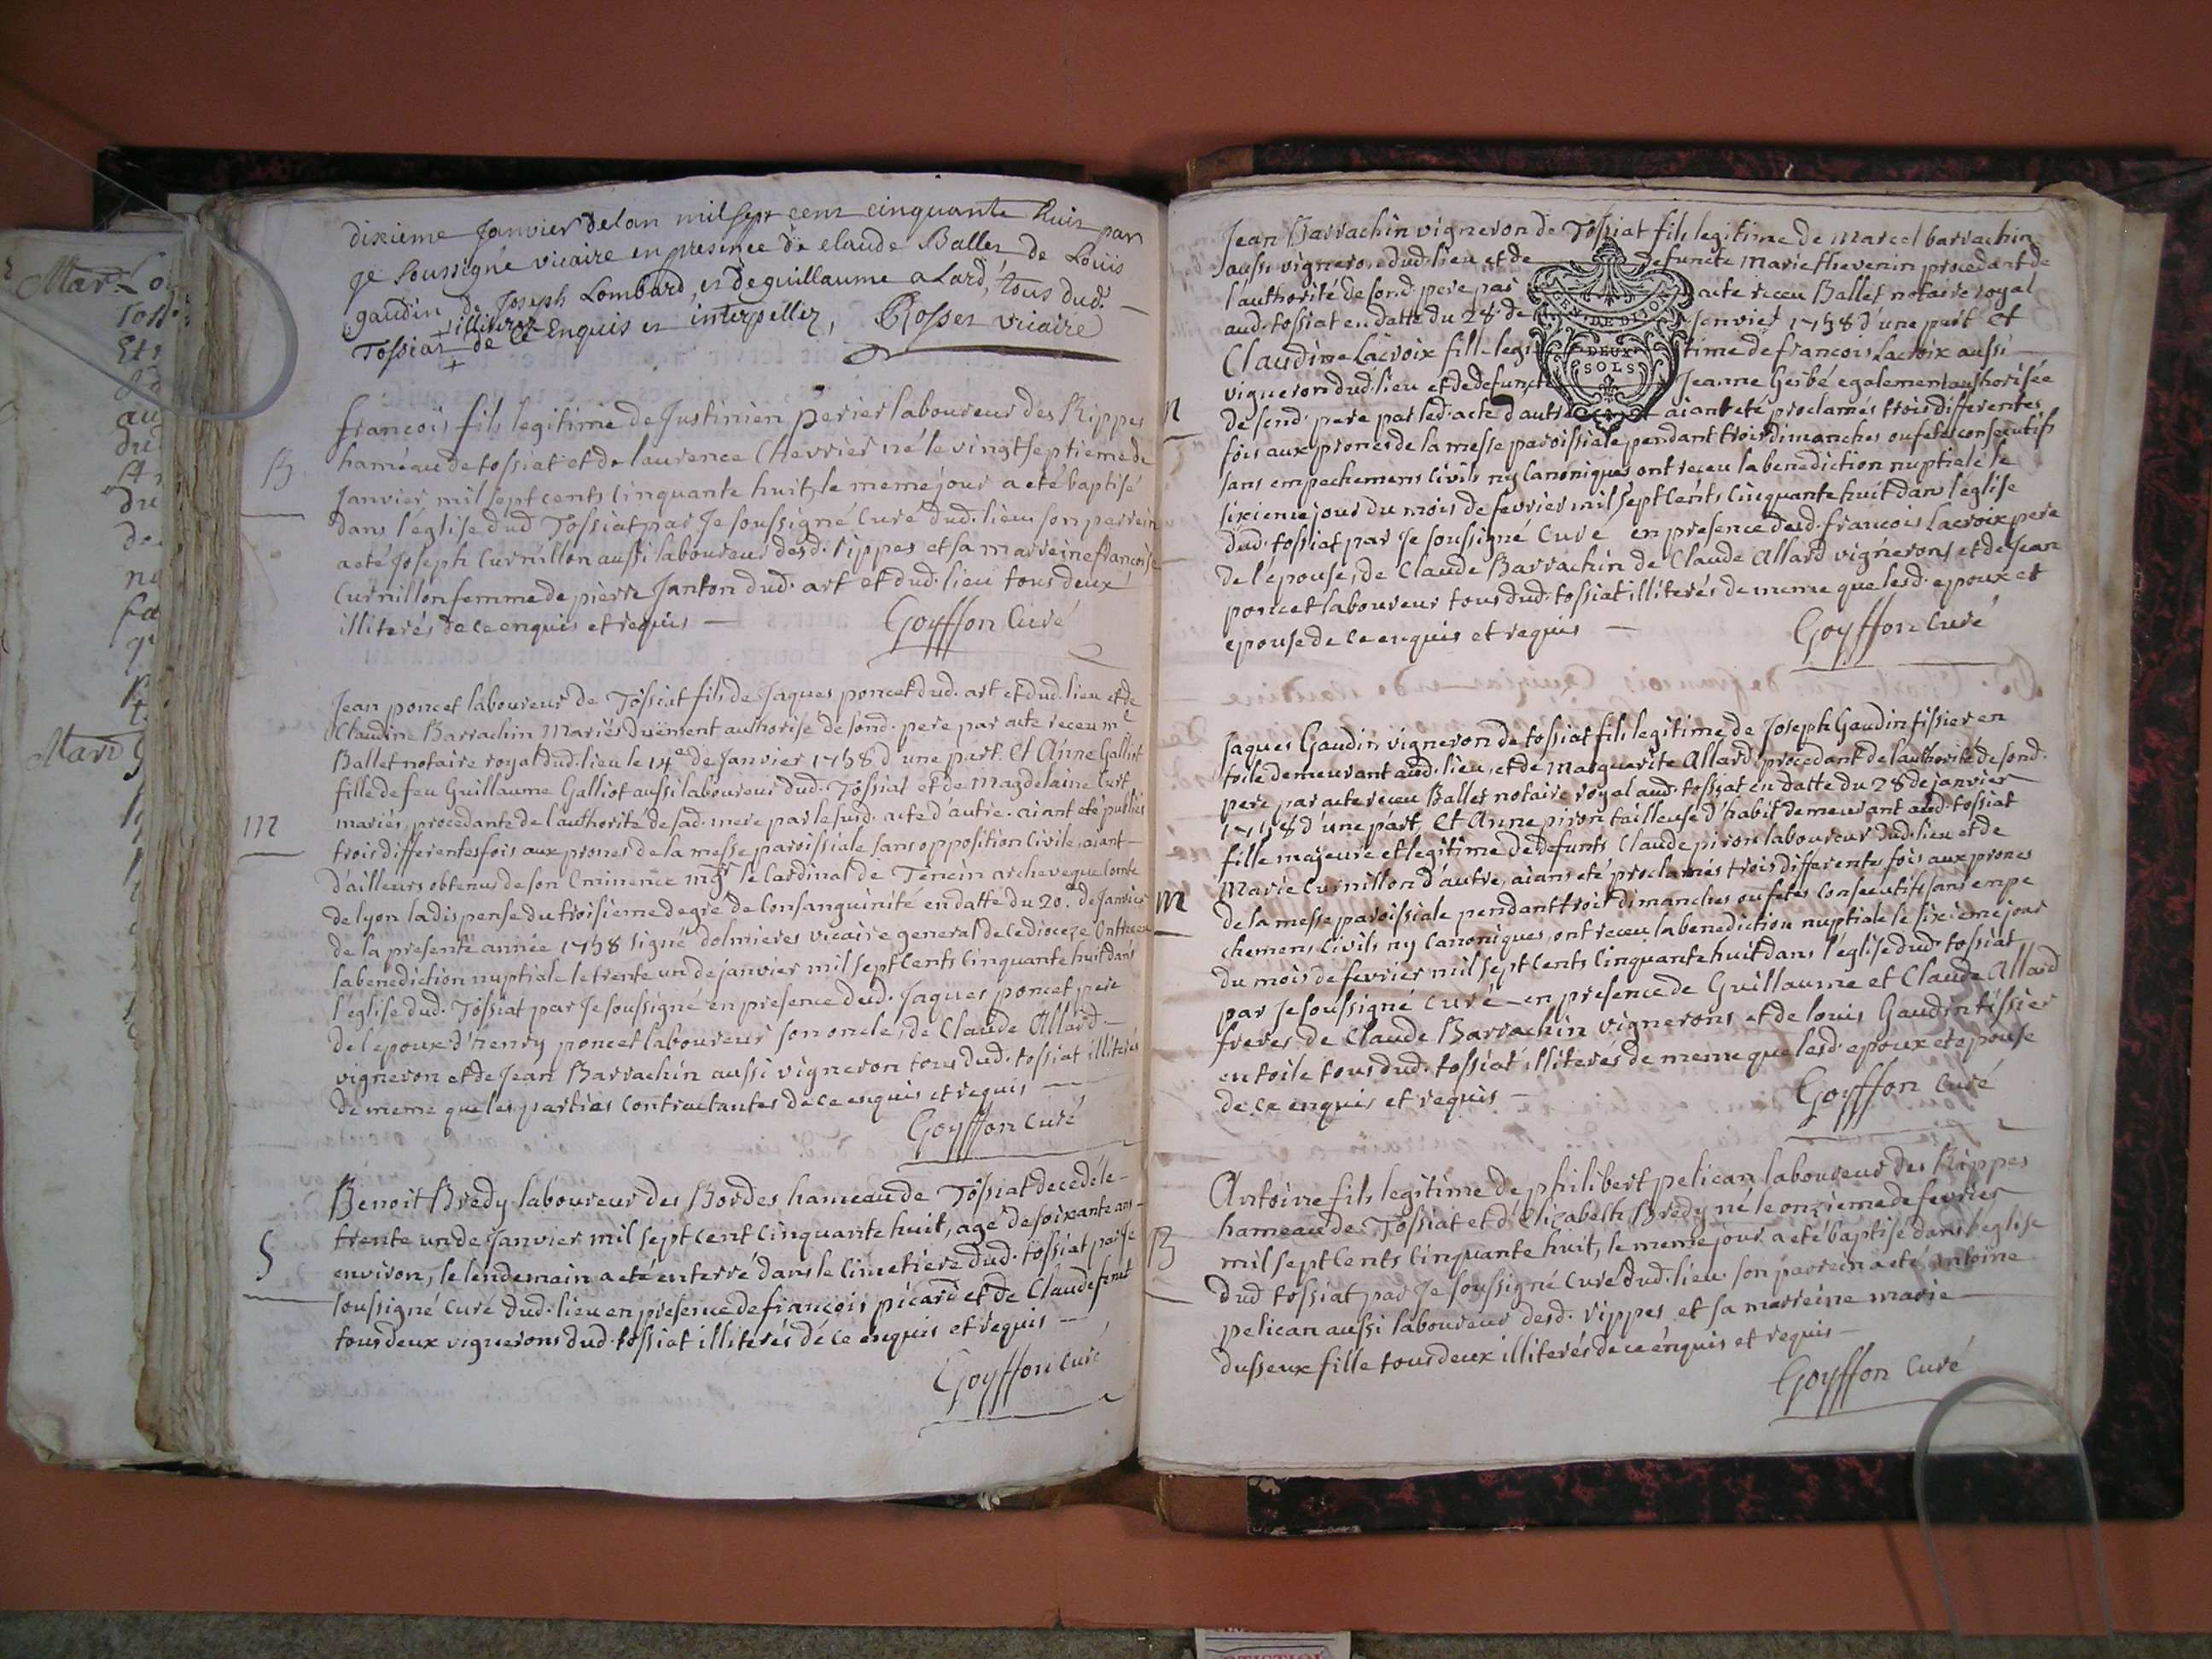 dixieme Janvier de lan mil sept cent cinquante huit par
je soussigné vicaire en presence de claude Ballet de Loüis
gaudin de Joseph Lombard, et de guillaume a Lard, tous dud.
Tossiat illiterez de ce Enquis et interpellez, Rosset vicaire
B
francois fils legitime de Justinien perier laboureur des Rippes
hameau de tossiat et de laurence Chevrier né le vingt septieme de
Janvier mil sept cents cinquante huit, le meme jour a eté baptisé
dans l'église dud Tossiat par Je soussigné Curé dud. lieu son parrein
a eté Joseph Curnillon aussi laboureur desd. rippes et sa marreine francoise
Curnillon femme de pierre Janton dud. art et dud. lieu tous deux
illiterés de ce enquis et requis — Goyffon Curé
m
Jean poncet laboureur de Tossiat fils de Jaques poncet dud. art et dud. lieu et de
Claudine Barrachin Mariés duëment authorisé de sond. pere par acte receu me
Ballet notaire royal dud. lieu le 14e de Janvier 1758 d'une part. Et Anne Galliot
fille de feu Guillaume Galliot aussi laboureur dud. Tossiat et de Magdelaine Curt
mariés, procedante de l'authorité de sad. mere par le susd. acte d'autre. aiant eté publiés
trois differentes fois aux prones de la messe paroissiale sans opposition Civile, aiant
d'ailleurs obtenus de son Eminence mgr le Cardinal de Tencin archeveque Comte
de lyon la dispense du troisieme degré de Consanguinité en datte du 20e. de Janvier
de la presente année 1758 signé dolmieres vicaire general de ce dioceze Ont receu
la benediction nuptiale le trente un de janvier mil sept Cents Cinquante huit dans
l'église dud. Tossiat par Je soussigné en presence dud. Jaques poncet pere
de l'epoux d'henry poncet laboureur son oncle, de Claude Allard
vigneron et de Jean Barrachin aussi vigneron tous dud. tossiat illiterés
de meme que les parties Contractantes de ce enquis et requis
Goyffon curé
S
Benoit Bredy laboureur des Bordes hameau de Tossiat decedé le
trente un de Janvier mil sept cent cinquante huit, agé de soixante ans
environ, le lendemain a eté enterré dans le cimetiere dud. tossiat par je
soussigné Curé dud. lieu en presence de francois picard et de Claude ferret
tous deux vignerons dud. tossiat illiterés de ce enquis et requis
Goyffon Curé
Jean Barrachin vigneron de Tossiat fils legitime de Marcel barrachin
aussi vigneron dud. lieu et de defuncte Marie thevenin procedant de
l'authorité de sond. pere par acte receu Ballet notaire royal
aud. tossiat en datte du 28 de Janvier 1758 d'une part et
GEN. DE DIJON
DEUX
SOLS
Claudine Lacroix fille legitime de francois Lacroix aussi
vigneron dud. lieu et de defuncte Jeanne Gerbé egalement authorisée
m
de sond. pere par led. acte d'autre aiant eté proclamés trois differentes
fois aux prones de la messe paroissiale pendant trois dimanches ou fetes consecutifs
sans empechemens civils ny Canoniques ont receu la benediction nuptiale le
sixieme jour du mois de fevrier mil sept Cents Cinquante huit dans l'église
dud. tossiat par Je soussigné Curé en presence dud. francois Lacroix pere
de l'epouse, de Claude Barrachin de Claude Allard vignerons et de Jean
poncet laboureur tous dud. tossiat illiterés de meme que lesd. epoux et
epouse de ce enquis et requis — Goyffon Curé
Jaques Gaudin vigneron de tossiat fils legitime de Joseph Gaudin tissier en
toile demeurant aud. lieu, et de Marguerite Allard, procedant de l'authorité de sond.
pere par acte receu Ballet notaire royal aud. tossiat en datte du 28 de janvier
1758 d'une part, Et Anne piron tailleuse d'habit demeurant aud. tossiat
fille majeure et legitime de defunts Claude piron laboureur dud. lieu et de
Marie Curnillon d'autre, aiant eté proclamés trois differentes fois aux prones
m
de la messe paroissiale pendant trois dimanches ou fetes Consecutifs sans empe
chemens Civils ny Canoniques, ont receu la benediction nuptiale le sixieme jour
du mois de fevrier mil sept Cents Cinquante huit dans l'église dud. tossiat
par Je soussigné Curé en presence de Guillaume et Claude Allard
freres de Claude Barrachin vignerons et de louis Gaudin tissier
en toile tous dud. tossiat illiterés de meme que lesd. epoux et epouse
de ce enquis et requis — Goyffon Curé
Antoine fils legitime de philibert pelican laboureur des Rippes
hameau de Tossiat et d'Elizabeth Bredy né le onzieme de fevrier
B
mil sept Cents Cinquante huit, le meme jour a eté baptisé dans l'église
dud tossiat par Je soussigné Curé dud. lieu. son parrein a eté Antoine
pelican aussi laboureur desd. rippes et sa marreine marie
dusseux fille tous deux illiterés de ce enquis et requis
Goyffon Curé